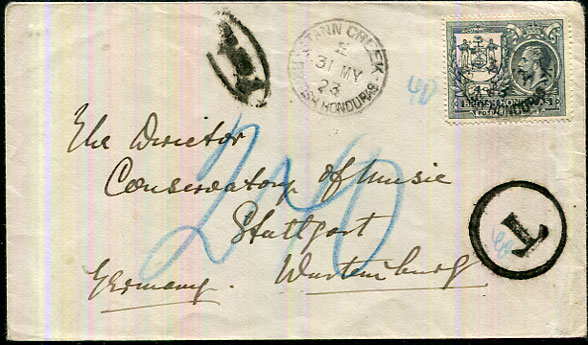 STANN CREEK
E
31 MY
23
BRITISH HONDURAS
4D
The Director
Conservatory of Music
Stuttgart
Germany. Wurtemburg
240
T